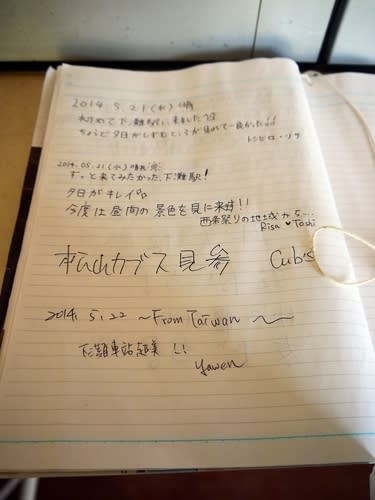 2014. 5. 21 (水) 晴
初めて下灘駅に来ました
ちょうど夕日がしずむところが見れて良かった!!
トシヒロ・リサ
2014.05.21 (水) 晴れ
ずっと来てみたかった、下灘駅!
夕日がキレイ
今度は昼間の景色を見に来ます!!
西条祭りの地域から...
Risa ♥ Toshi
松山カブス見参 Cub's
2014. 5. 22 ~From Taiwan ~
下灘車站超美!!
Yawen